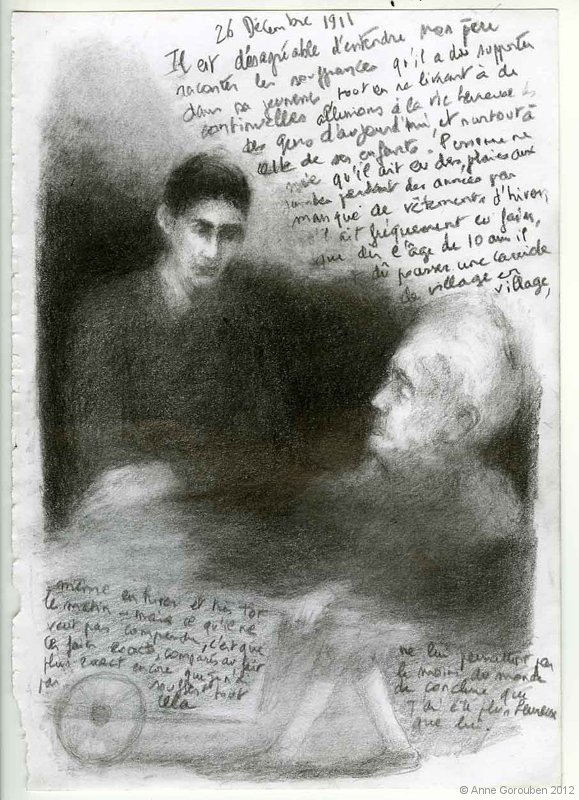 26 Décembre 1911
Il est désagréable d'entendre mon père
raconter les souffrances qu'il a dû supporter
dans sa jeunesse, tout en se livrant à de
continuelles allusions à la vie heureuse
des gens d'aujourd'hui et surtout à
celle de ses enfants. Personne ne
nie qu'il ait eu des plaies aux
jambes pendant des années par
manque de vêtements d'hiver,
qu'il ait fréquemment eu faim,
que dès l'âge de 10 ans il
dû pousser une carriole
de village en
village,
même en hiver et très tôt
le matin - mais ce qu'il ne
veut pas comprendre, c'est que
ces faits exacts, comparés au fait
plus exact encore que je n'ai
pas souffert tout
cela
ne lui permettent pas
le moins du monde
de conclure que
j'ai été plus heureux
que lui.
© Anne Gorouben 2012